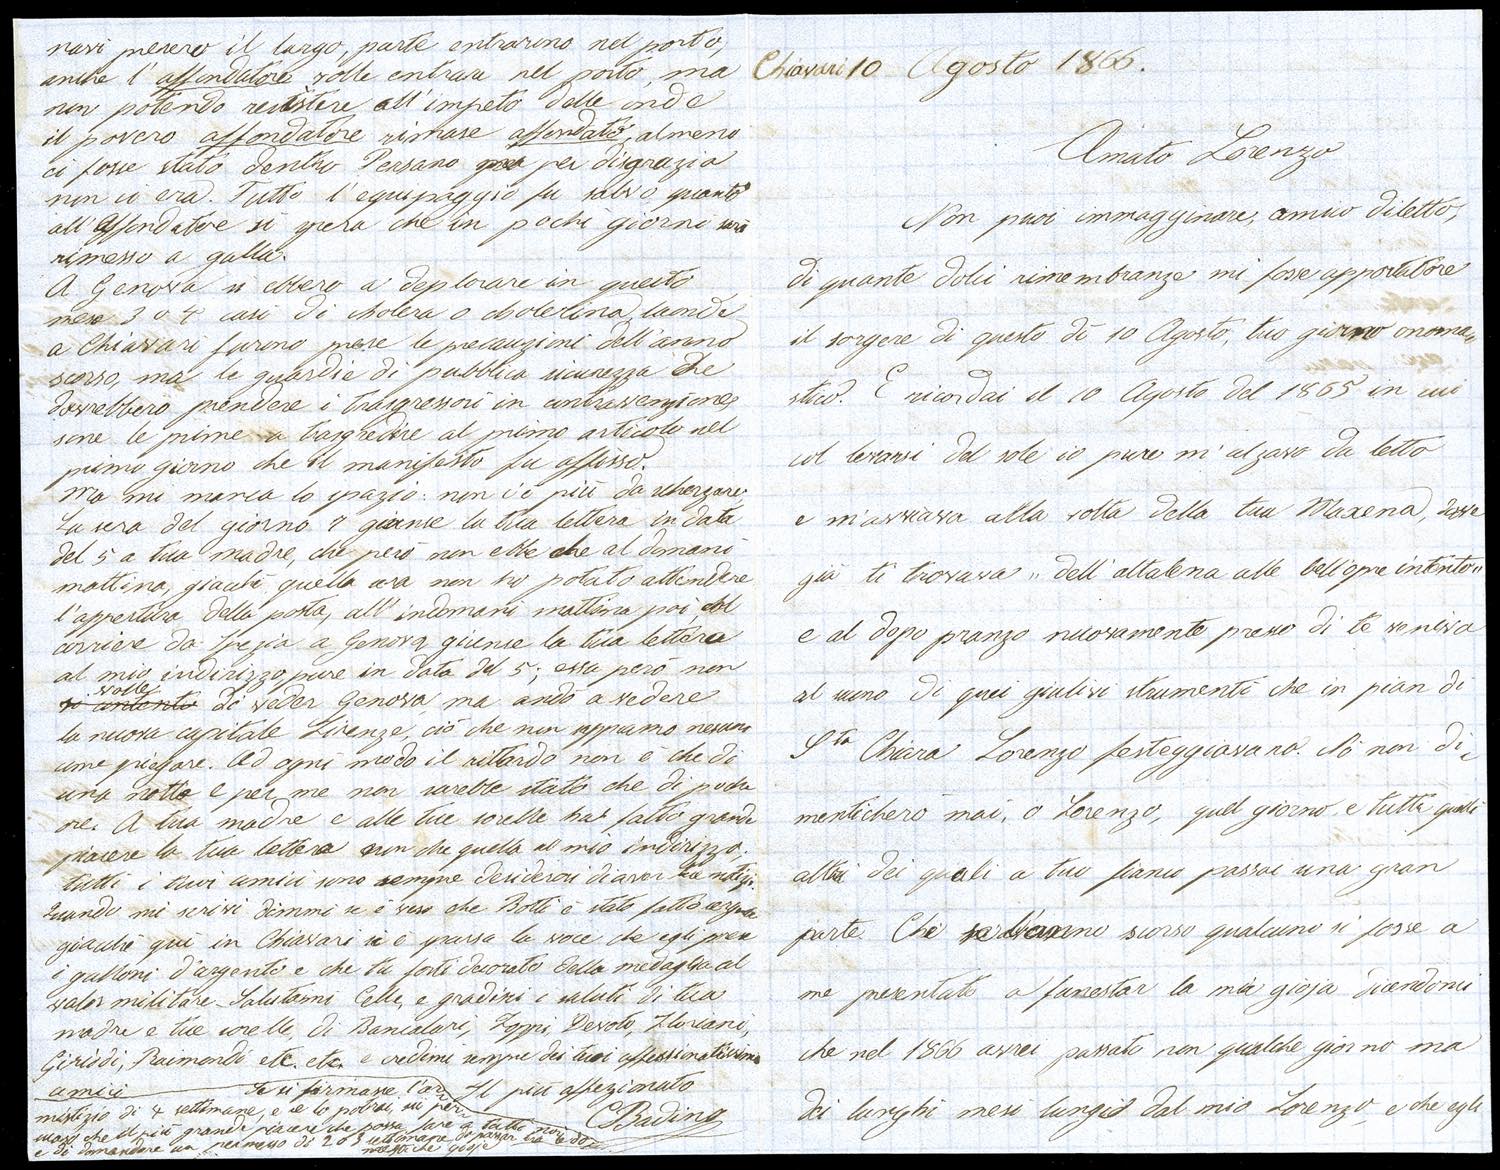 Chiavari 10 Agosto 1866.
Amato Lorenzo
Non puoi immagginare, amico diletto,
di quante dolci rimembranze mi fosse apportatore
il sorgere di questo dì 10 Agosto, tuo giorno onoma-
stico. E ricordai il 10 Agosto del 1865 in cui
col levarsi del sole io pure m'alzavo da letto
e m'avviava alla volta della tua Maxena, dove
già ti trovava "dell'altalena alle bell'opre intento"
e al dopo pranzo nuovamente presso di te veniva
al suono di quei giulivi strumenti che in pian di
Sta Chiara Lorenzo festeggiavano. No non di-
menticherò mai, o Lorenzo, quel giorno e tutti quelli
altri dei quali a tuo fianco passai una gran
parte. Che se l'anno scorso qualcuno si fosse a
me presentato a funestar la mia gioja dicendomi
che nel 1866 avrei passati non qualche giorno ma
dei lunghi mesi lungi dal mio Lorenzo, e che egli
navi presero il largo, parte entrarono nel porto,
anche l'affondatore volle entrare nel porto, ma
non potendo resistere all'impeto delle onde
il povero affondatore rimase affondato, almeno
ci fosse stato dentro Persano ma per disgrazia
non ci era. Tutto l'equipaggio fu salvo quanto
all'Affondatore si spera che in pochi giorni sarà
rimesso a galla.
A Genova si ebbero a deplorare in questo
mese 3 o 4 casi di cholera o cholerina, laonde
a Chiavari furono prese le precauzioni dell'anno
scorso, ma le guardie di pubblica sicurezza che
dovrebbero prendere i trasgressori in contravvenzione,
sono le prime a trasgredire al primo articolo nel
primo giorno che il manifesto fu affisso.
Ma mi manca lo spazio: non c'è più da scherzare.
La sera del giorno 7 giunse la tua lettera in data
del 5 a tua madre, che però non ebbe che al domani
mattina, giacchè quella sera non ho potuto attendere
l'appertura della posta, all'indomani mattina poi, col
corriere da Spezia a Genova, giunse la tua lettera
al mio indirizzo, pure in data del 5; essa però non
volle
contenta di veder Genova, ma andò a vedere
la nuova capitale Firenze, ciò che non sappiamo nessuno
come spiegare. Ad ogni modo il rittardo non è che di
una notte e per me non sarebbe stato che di poche
ore. A tua madre e alle tue sorelle ha fatto grande
piacere la tua lettera non che quella al mio indirizzo.
tutti i tuoi amici sono sempre desiderosi di aver tue notizie.
Quando mi scrivi dimmi se è vero che Botti è stato fatto
giacchè quì in Chiavari si è sparsa la voce che egli prese
i galloni d'argento e che tu fosti decorato della medaglia al
valor militare. Salutami Celle, e gradisci i saluti di tua
madre e tue sorelle, di Bancalari, Zoppi, Devoto, Floriani,
Raimondi etc. etc. e credimi sempre dei tuoi affezionatissimi
amici
Il più affezionato
Se si firmasse l'ar-
mistizio di 4 settimane, e se lo potrai, sii per-
suaso che il più grande piacere che possa fare a tutti noi
è di domandare un permesso di 2 o 3 settimane da passar tra le do-
mestiche gioje